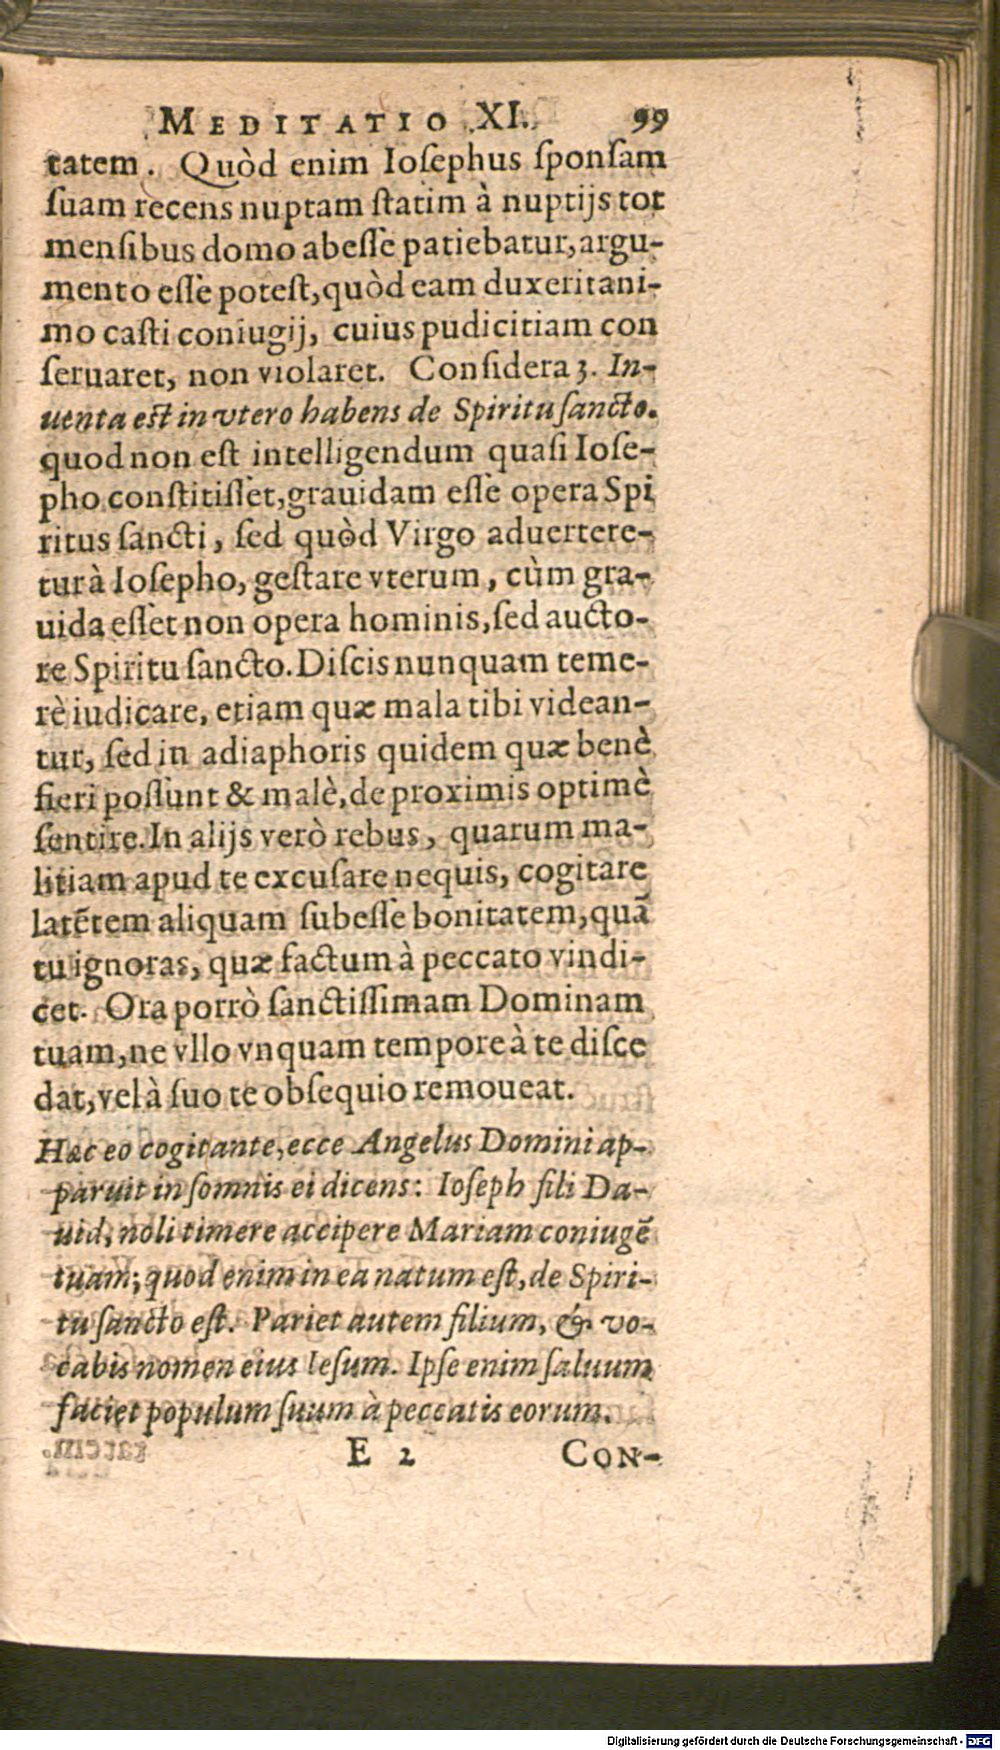 MEDITATIO XI. 99
tatem. Quòd enim Ioſephus ſponſam
ſuam recens nuptam ſtatim à nuptijs tot
menſibus domo abeſſe patiebatur, argu-
mento eſſe poteſt, quòd eam duxerit ani-
mo caſti coniugij, cuius pudicitiam con
ſeruaret, non violaret. Conſidera 3. In-
uenta eſt in vtero habens de Spiritu ſancto.
quod non eſt intelligendum quaſi Ioſe-
pho conſtitiſſet, grauidam eſſe opera Spi
ritus ſancti, ſed quòd Virgo aduertere-
tur à Ioſepho, geſtare vterum, cùm gra-
uida eſſet non opera hominis, ſed aucto-
re Spiritu ſancto. Diſcis nunquam teme-
rè iudicare, etiam quæ mala tibi videan-
tur, ſed in adiaphoris quidem quæ benè
fieri poſſunt & malè, de proximis optimè
ſentire. In alijs verò rebus, quarum ma-
litiam apud te excuſare nequis, cogitare
latẽtem aliquam ſubeſſe bonitatem, quã
tu ignoras, quæ factum à peccato vindi-
cet. Ora porrò ſanctiſſimam Dominam
tuam, ne vllo vnquam tempore à te diſce
dat, vel à ſuo te obſequio remoueat.
Hæc eo cogitante, ecce Angelus Domini ap-
paruit in ſomnis ei dicens: Ioſeph fili Da-
uid, noli timere accipere Mariam coniugẽ
tuam; quod enim in ea natum eſt, de Spiri-
tu ſancto eſt. Pariet autem filium, & vo-
cabis nomen eius Ieſum. Ipſe enim ſaluum
faciet populum ſuum à peccatis eorum.
E 2 CON-
Digitalisierung gefördert durch die Deutsche Forschungsgemeinschaft - DFG